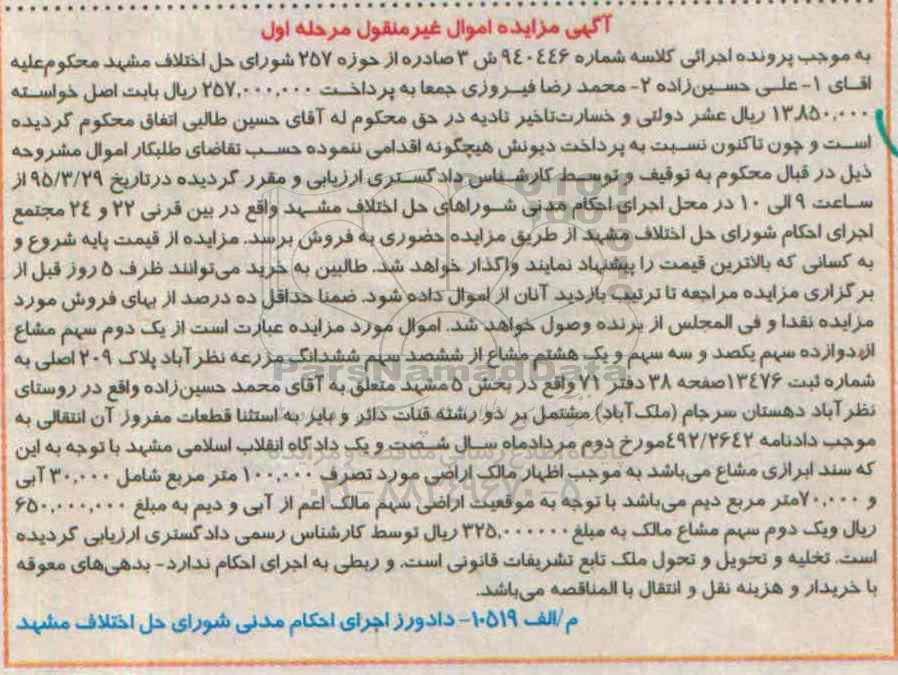 آگهی مزایده اموال غیرمنقول مرحله اول
به موجب پرونده اجرائی کلاسه شماره ۹۴۰۴۴۶ ش ۳ صادره از حوزه ۲۵۷ شورای حل اختلاف مشهد محکوم‌علیه
اقای ۱- علی حسین‌زاده ۲- محمد رضا فیروزی جمعا به پرداخت ۲۵۷,۰۰۰,۰۰۰ ریال بابت اصل خواسته
۱۳,۸۵۰,۰۰۰ ریال عشر دولتی و خسارت‌تاخیر تادیه در حق محکوم له آقای حسین طالبی اتفاق محکوم گردیده
است و چون تاکنون نسبت به پرداخت دیونش هیچگونه اقدامی ننموده حسب تقاضای طلبکار اموال مشروحه
ذیل در قبال محکوم به توقیف و توسط کارشناس دادگستری ارزیابی و مقرر گردیده درتاریخ ۹۵/۳/۲۹ از
ساعت ۹ الی ۱۰ در محل اجرای احکام مدنی شوراهای حل اختلاف مشهد واقع در بین قرنی ۲۲ و ۲۴ مجتمع
اجرای احکام شورای حل اختلاف مشهد از طریق مزایده حضوری به فروش برسد. مزایده از قیمت پایه شروع و
به کسانی که بالاترین قیمت را پیشنهاد نمایند واگذار خواهد شد. طالبین به خرید می‌توانند ظرف ۵ روز قبل از
برگزاری مزایده مراجعه تا ترتیب بازدید آنان از اموال داده شود. ضمنا حداقل ده درصد از بهای فروش مورد
مزایده نقدا و فی المجلس از برنده وصول خواهد شد. اموال مورد مزایده عبارت است از یک دوم سهم مشاع
از دوازده سهم یکصد و سه سهم و یک هشتم مشاع از ششصد سهم ششدانگ مزرعه نظر آباد پلاک ۲۰۹ اصلی به
شماره ثبت ۱۳۴۷۶ صفحه ۳۸ دفتر ۷۱ واقع در بخش ۵ مشهد متعلق به آقای محمد حسین‌زاده واقع در روستای
نظر آباد دهستان سرجام (ملک‌آباد) مشتمل بر دو رشته قنات دائر و بایر به استثنا قطعات مفروز آن انتقالی به
موجب دادنامه ۴۹۲/۲۶۴۲مورخ دوم مردادماه سال شصت و یک دادگاه انقلاب اسلامی مشهد با توجه به این
که سند ابرازی مشاع می‌باشد به موجب اظهار مالک اراضی مورد تصرف ۱۰۰,۰۰۰ متر مربع شامل ۳۰,۰۰۰ آبی
و ۷۰,۰۰۰متر مربع دیم می‌باشد با توجه به موقعیت اراضی سهم مالک اعم از آبی و دیم به مبلغ ۶۵۰,۰۰۰,۰۰۰
ریال ویک دوم سهم مشاع مالک به مبلغ ۳۲۵,۰۰۰۰۰۰ ریال توسط کارشناس رسمی دادگستری ارزیابی گردیده
است. تخلیه و تحویل و تحول ملک تابع تشریفات قانونی است. و ربطی به اجرای احکام ندارد- بدهی‌های معوقه
با خریدار و هزینه نقل و انتقال با المناقصه می‌باشد.
م/الف ۱۰۵۱۹- دادورز اجرای احکام مدنی شورای حل اختلاف مشهد
ParsNamadData